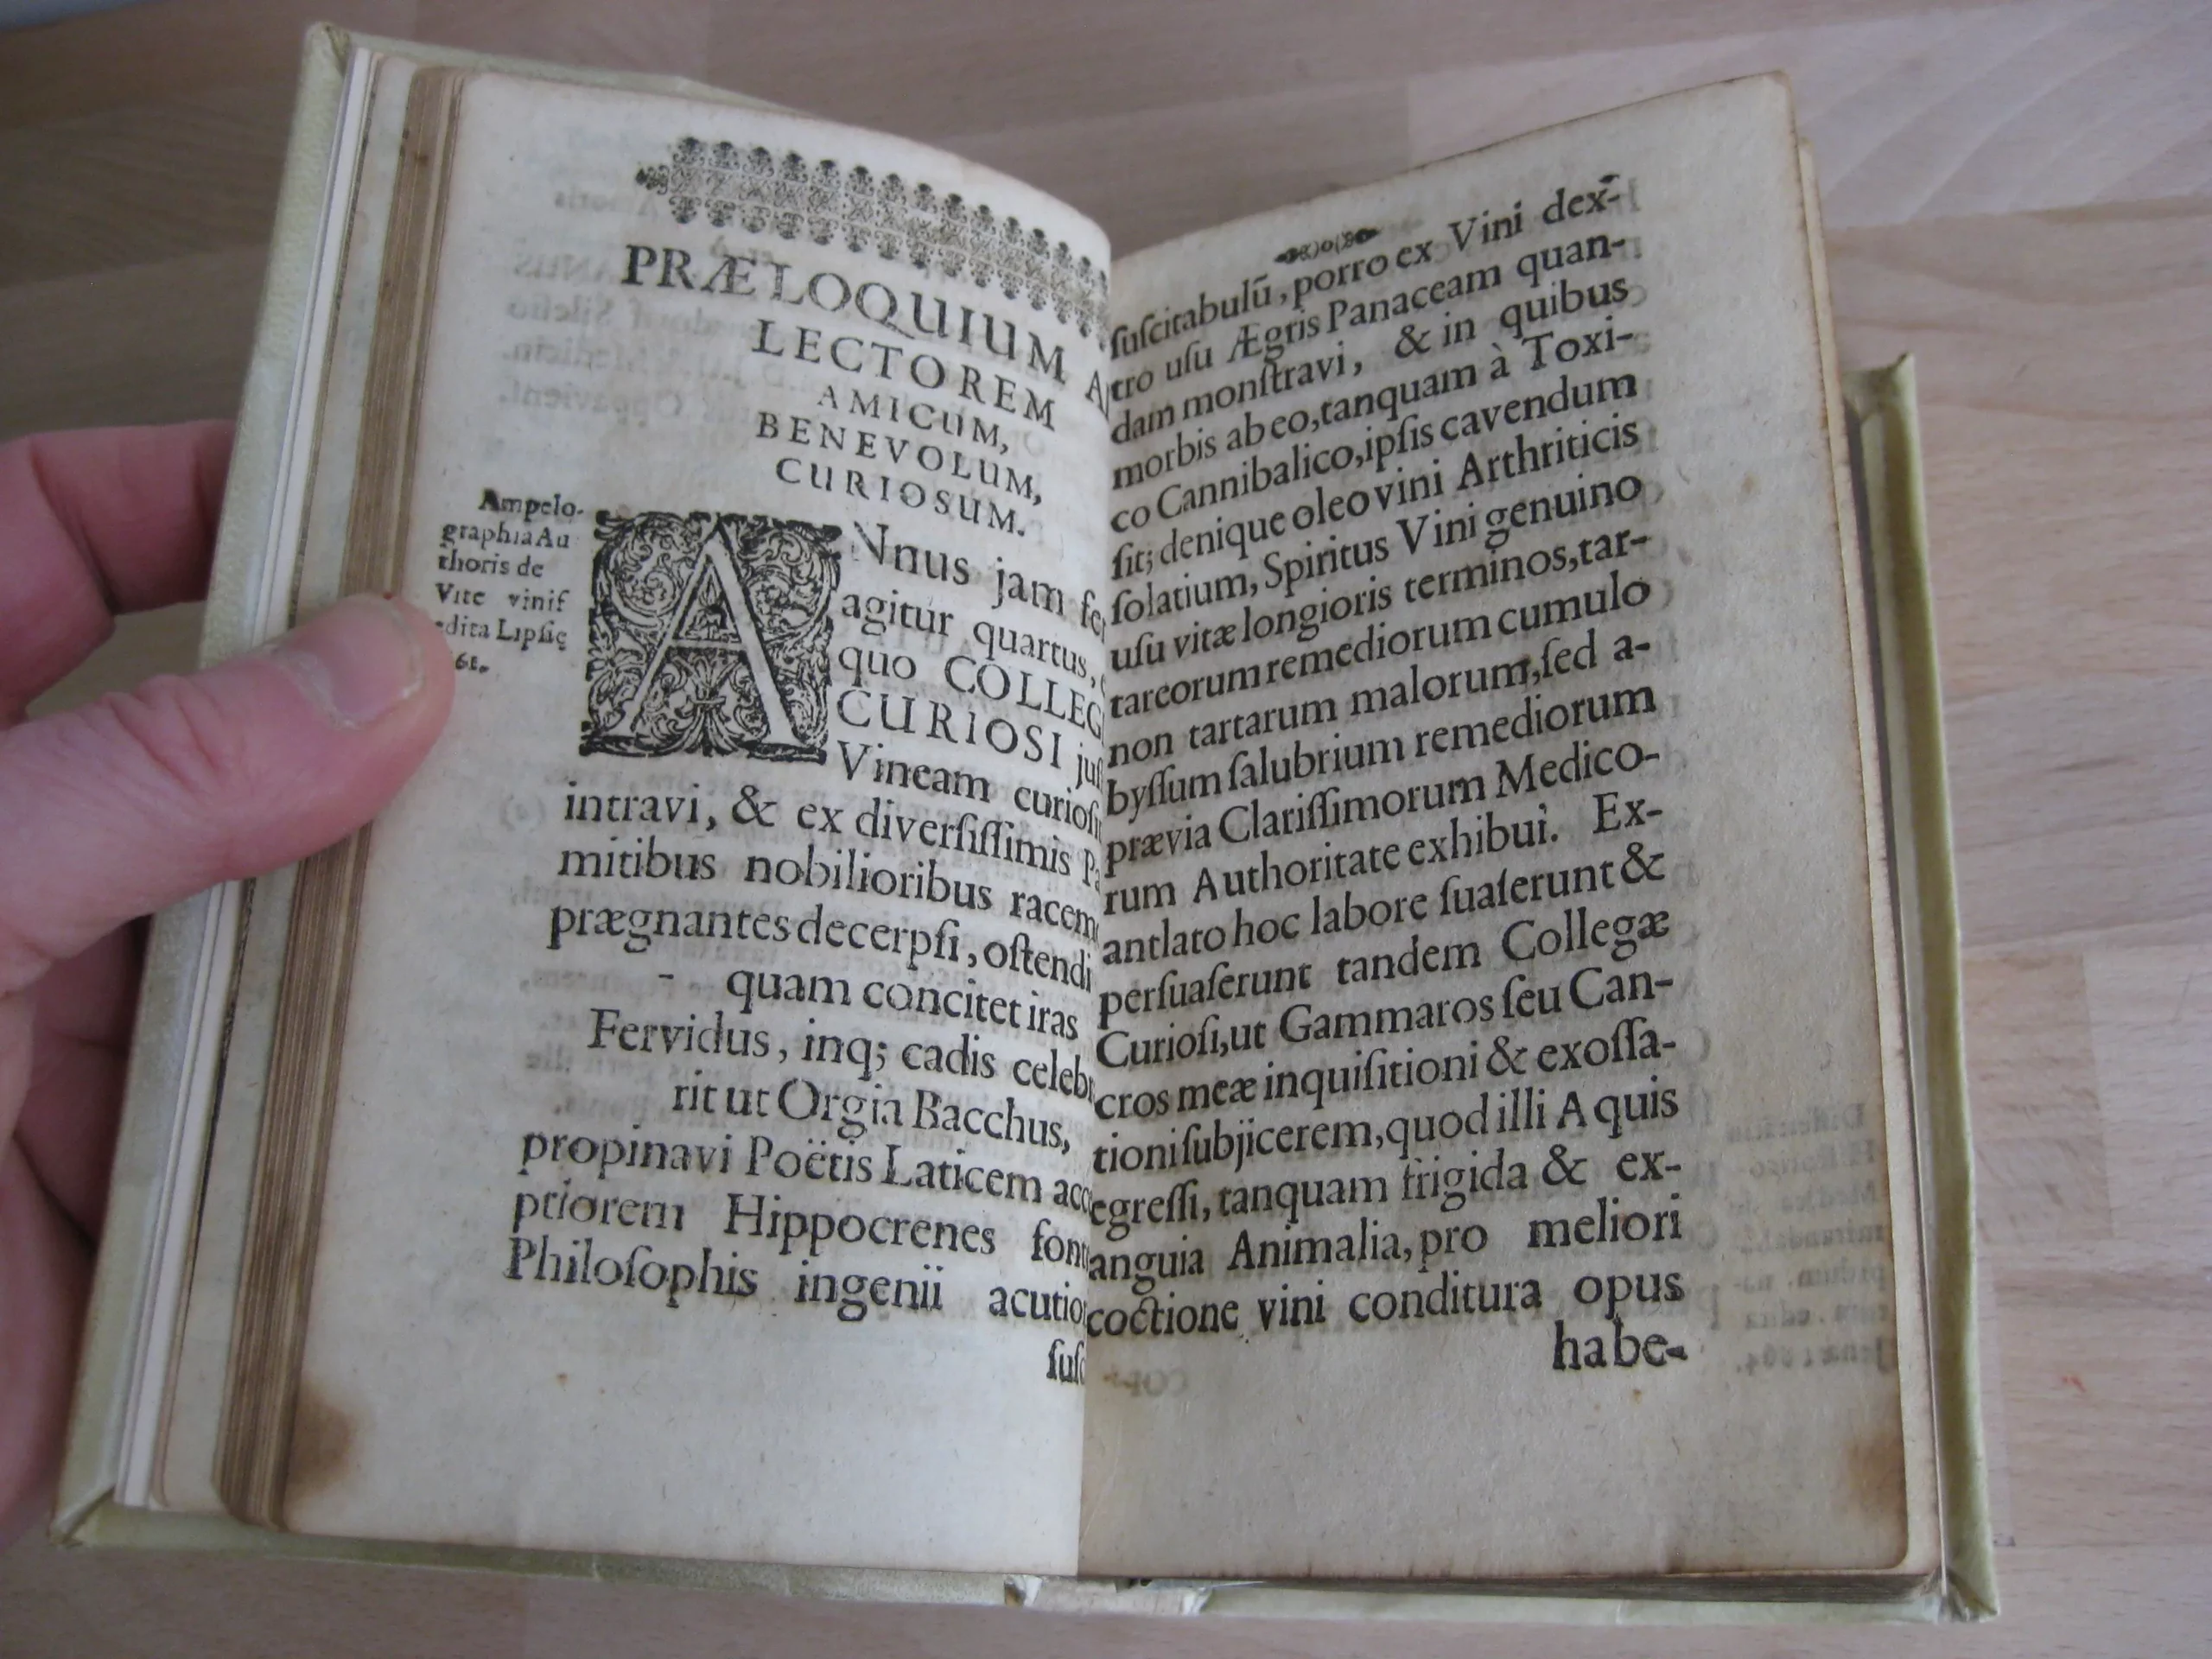 PRÆLOQUIUM
LECTOREM
AMICUM,
BENEVOLUM,
CURIOSUM.
Ampelo-
graphia Au
thoris de
Vite vinif
edita Lipsię
61.
ANnus jam
agitur quartus,
quo COLLEG
CURIOSI
Vineam
intravi, & ex diverſiſſimis
mitibus nobilioribus
prægnantes decerpſi, oſtendi
quam concitet iras
Fervidus, inq; cadis
rit ut Orgia Bacchus,
propinavi Poëtis Laticem
ptiorem Hippocrenes
Philoſophis ingenii
ſuſcitabulū, porro ex Vini dex-
tro uſu Ægris Panaceam quan-
dam monſtravi, & in quibus
morbis ab eo, tanquam à Toxi-
co Cannibalico, ipſis cavendum
ſit; denique oleo vini Arthriticis
ſolatium, Spiritus Vini genuino
uſu vitæ longioris terminos, tar-
tareorum remediorum cumulo
non tartarum malorum, ſed a-
byſſum ſalubrium remediorum
prævia Clariſſimorum Medico-
rum Authoritate exhibui. Ex-
antlato hoc labore ſuaſerunt &
perſuaſerunt tandem Collegæ
Curioſi, ut Gammaros ſeu Can-
cros meæ inquiſitioni & exoſſa-
tioni ſubjicerem, quod illi A quis
egreſſi, tanquam frigida & ex-
anguia Animalia, pro meliori
coctione vini conditura opus
habe-